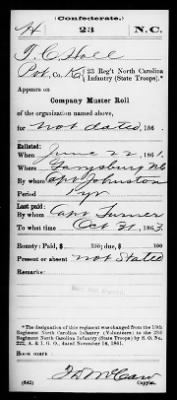 (Confederate.)
H 23 N.C.
T. C. Hall
Pvt, Co. K, 23 Reg't North Carolina
Infantry (State Troops).*
Appears on
Company Muster Roll
of the organization named above,
for not dated, 186 .
Enlisted:
When June 22, 1861.
Where Garysburg NC
By whom Capt Johnston
Period yr
Last paid:
By whom Capt Turner
To what time Oct 31, 1863.
Bounty: Paid, $ 100; due, $ 100
Present or absent not stated
Remarks:
*The designation of this regiment was changed from the 13th
Regiment North Carolina Infantry (Volunteers) to the 23d
Regiment North Carolina Infantry (State Troops) by S. O. No.
222, A. & I. G. O., dated November 14, 1861.
Book mark:
(642) Copyist.